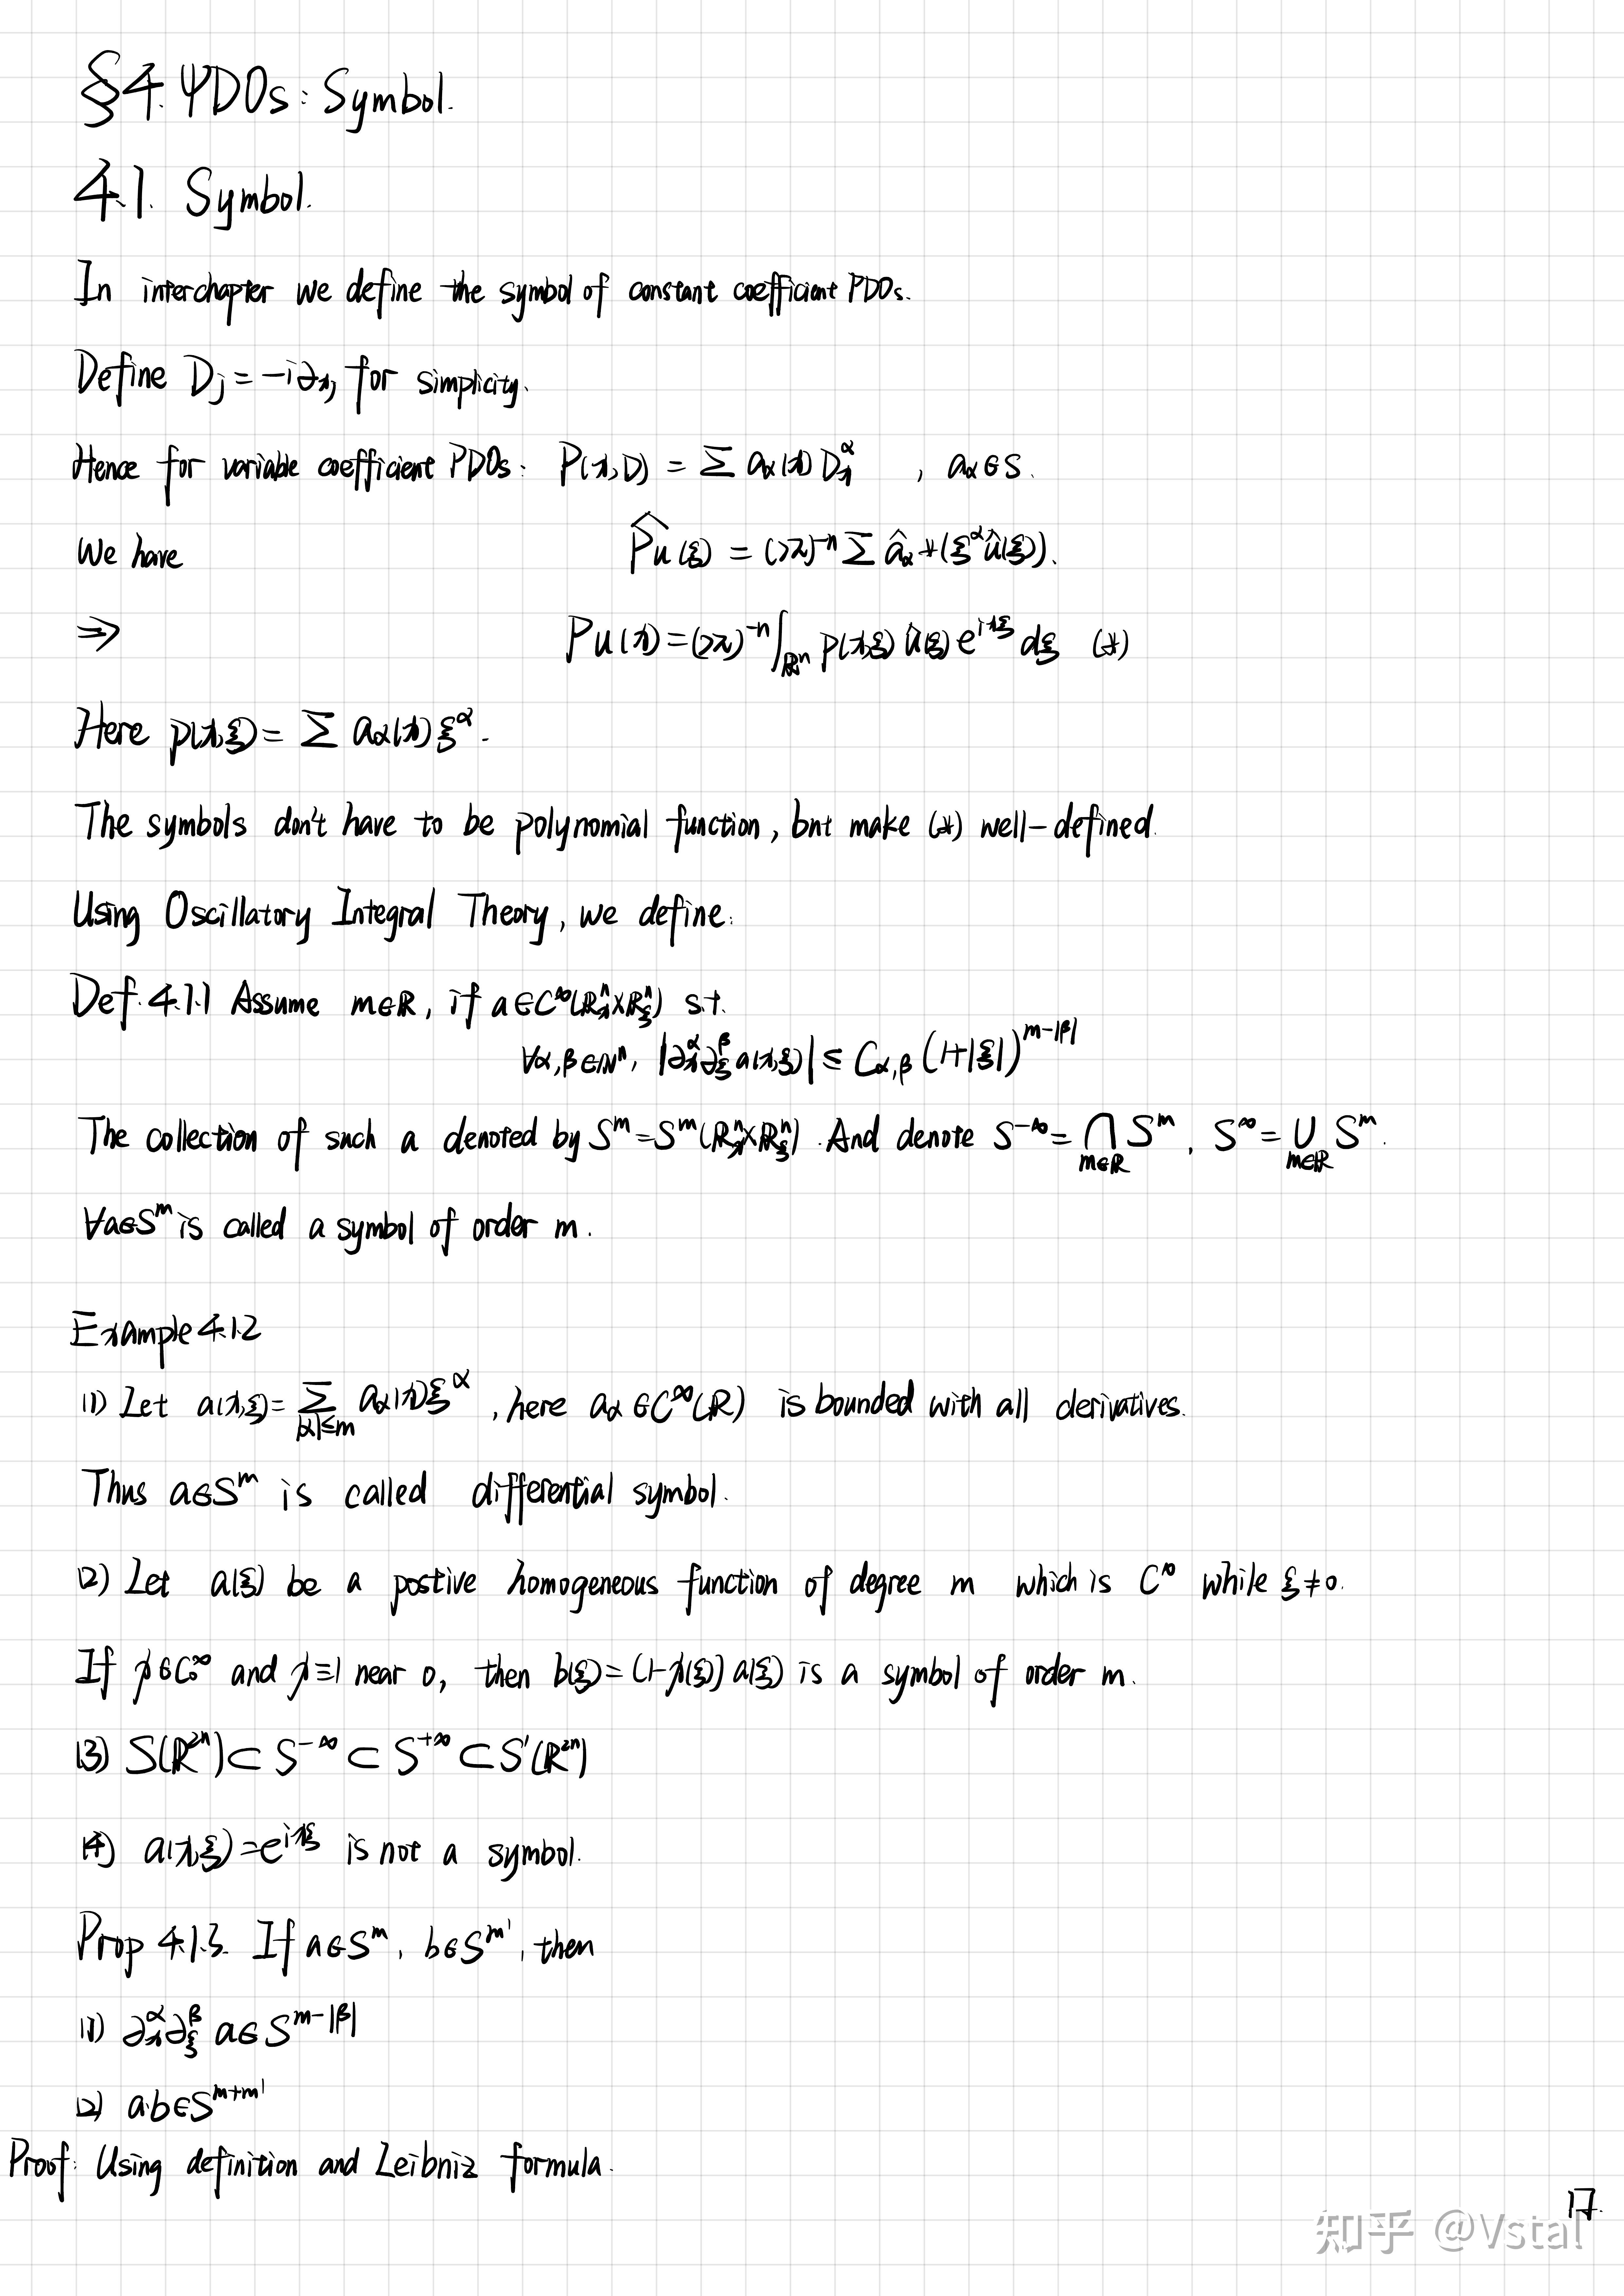 §4. ΨDOs: Symbol.
4.1. Symbol.
In interchapter we define the symbol of constant coefficient PDOs.
Define D_j = -i∂_{x_j} for simplicity.
Hence for variable coefficient PDOs: P(x,D) = Σ a_α(x) D_x^α , a_α ∈ S.
We have \widehat{Pu}(ξ) = (2π)^{-n} Σ \hat{a}_α * (ξ^α \hat{u}(ξ)).
⇒ Pu(x) = (2π)^{-n} ∫_{ℝ^n} p(x,ξ) \hat{u}(ξ) e^{ixξ} dξ (*)
Here p(x,ξ) = Σ a_α(x) ξ^α.
The symbols don't have to be polynomial function, but make (*) well-defined.
Using Oscillatory Integral Theory, we define:
Def. 4.1.1 Assume m∈ℝ, if a∈C^∞(ℝ_x^n×ℝ_ξ^n) s.t.
∀α,β∈ℕ^n, |∂_x^α ∂_ξ^β a(x,ξ)| ≤ C_{α,β} (1+|ξ|)^{m-|β|}
The collection of such a denoted by S^m = S^m(ℝ_x^n×ℝ_ξ^n). And denote S^{-∞} = ⋂_{m∈ℝ} S^m, S^∞ = ⋃_{m∈ℝ} S^m.
∀a∈S^m is called a symbol of order m.
Example 4.1.2
(1) Let a(x,ξ) = Σ_{|α|≤m} a_α(x) ξ^α, here a_α ∈ C^∞(ℝ) is bounded with all derivatives.
Thus a∈S^m is called differential symbol.
(2) Let a(ξ) be a postive homogeneous function of degree m which is C^∞ while ξ≠0.
If χ∈C_0^∞ and χ≡1 near 0, then b(ξ) = (1-χ(ξ)) a(ξ) is a symbol of order m.
(3) S(ℝ^{2n}) ⊂ S^{-∞} ⊂ S^{+∞} ⊂ S'(ℝ^{2n})
(4) a(x,ξ) = e^{ixξ} is not a symbol.
Prop 4.1.3. If a∈S^m, b∈S^{m'}, then
(1) ∂_x^α ∂_ξ^β a∈S^{m-|β|}
(2) a·b∈S^{m+m'}
Proof: Using definition and Leibniz formula.
17.
知乎 @Vstal